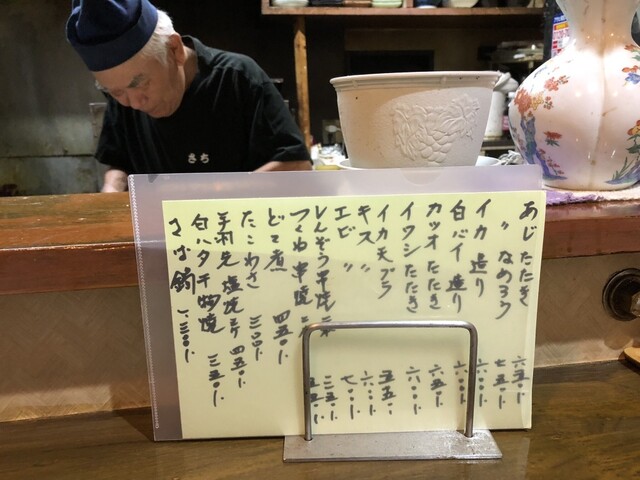 さち
あじたたき 六五〇.
〃 なめろう 七五〇.
イカ 造り 六〇〇.
白バイ 造り 六〇〇.
カツオ たたき 六五〇.
イワシ たたき 六〇〇.
イカ天プラ 五五〇
キス 〃 六〇〇.
エビ 〃 七〇〇.
しんぞう串焼 三五〇.
つくね串焼 五五〇.
どて煮 四五〇.
たこわさ 三〇〇.
手羽先 塩焼 四五〇.
白ハタ干物焼 三五〇.
さば鍋 一、三〇〇.